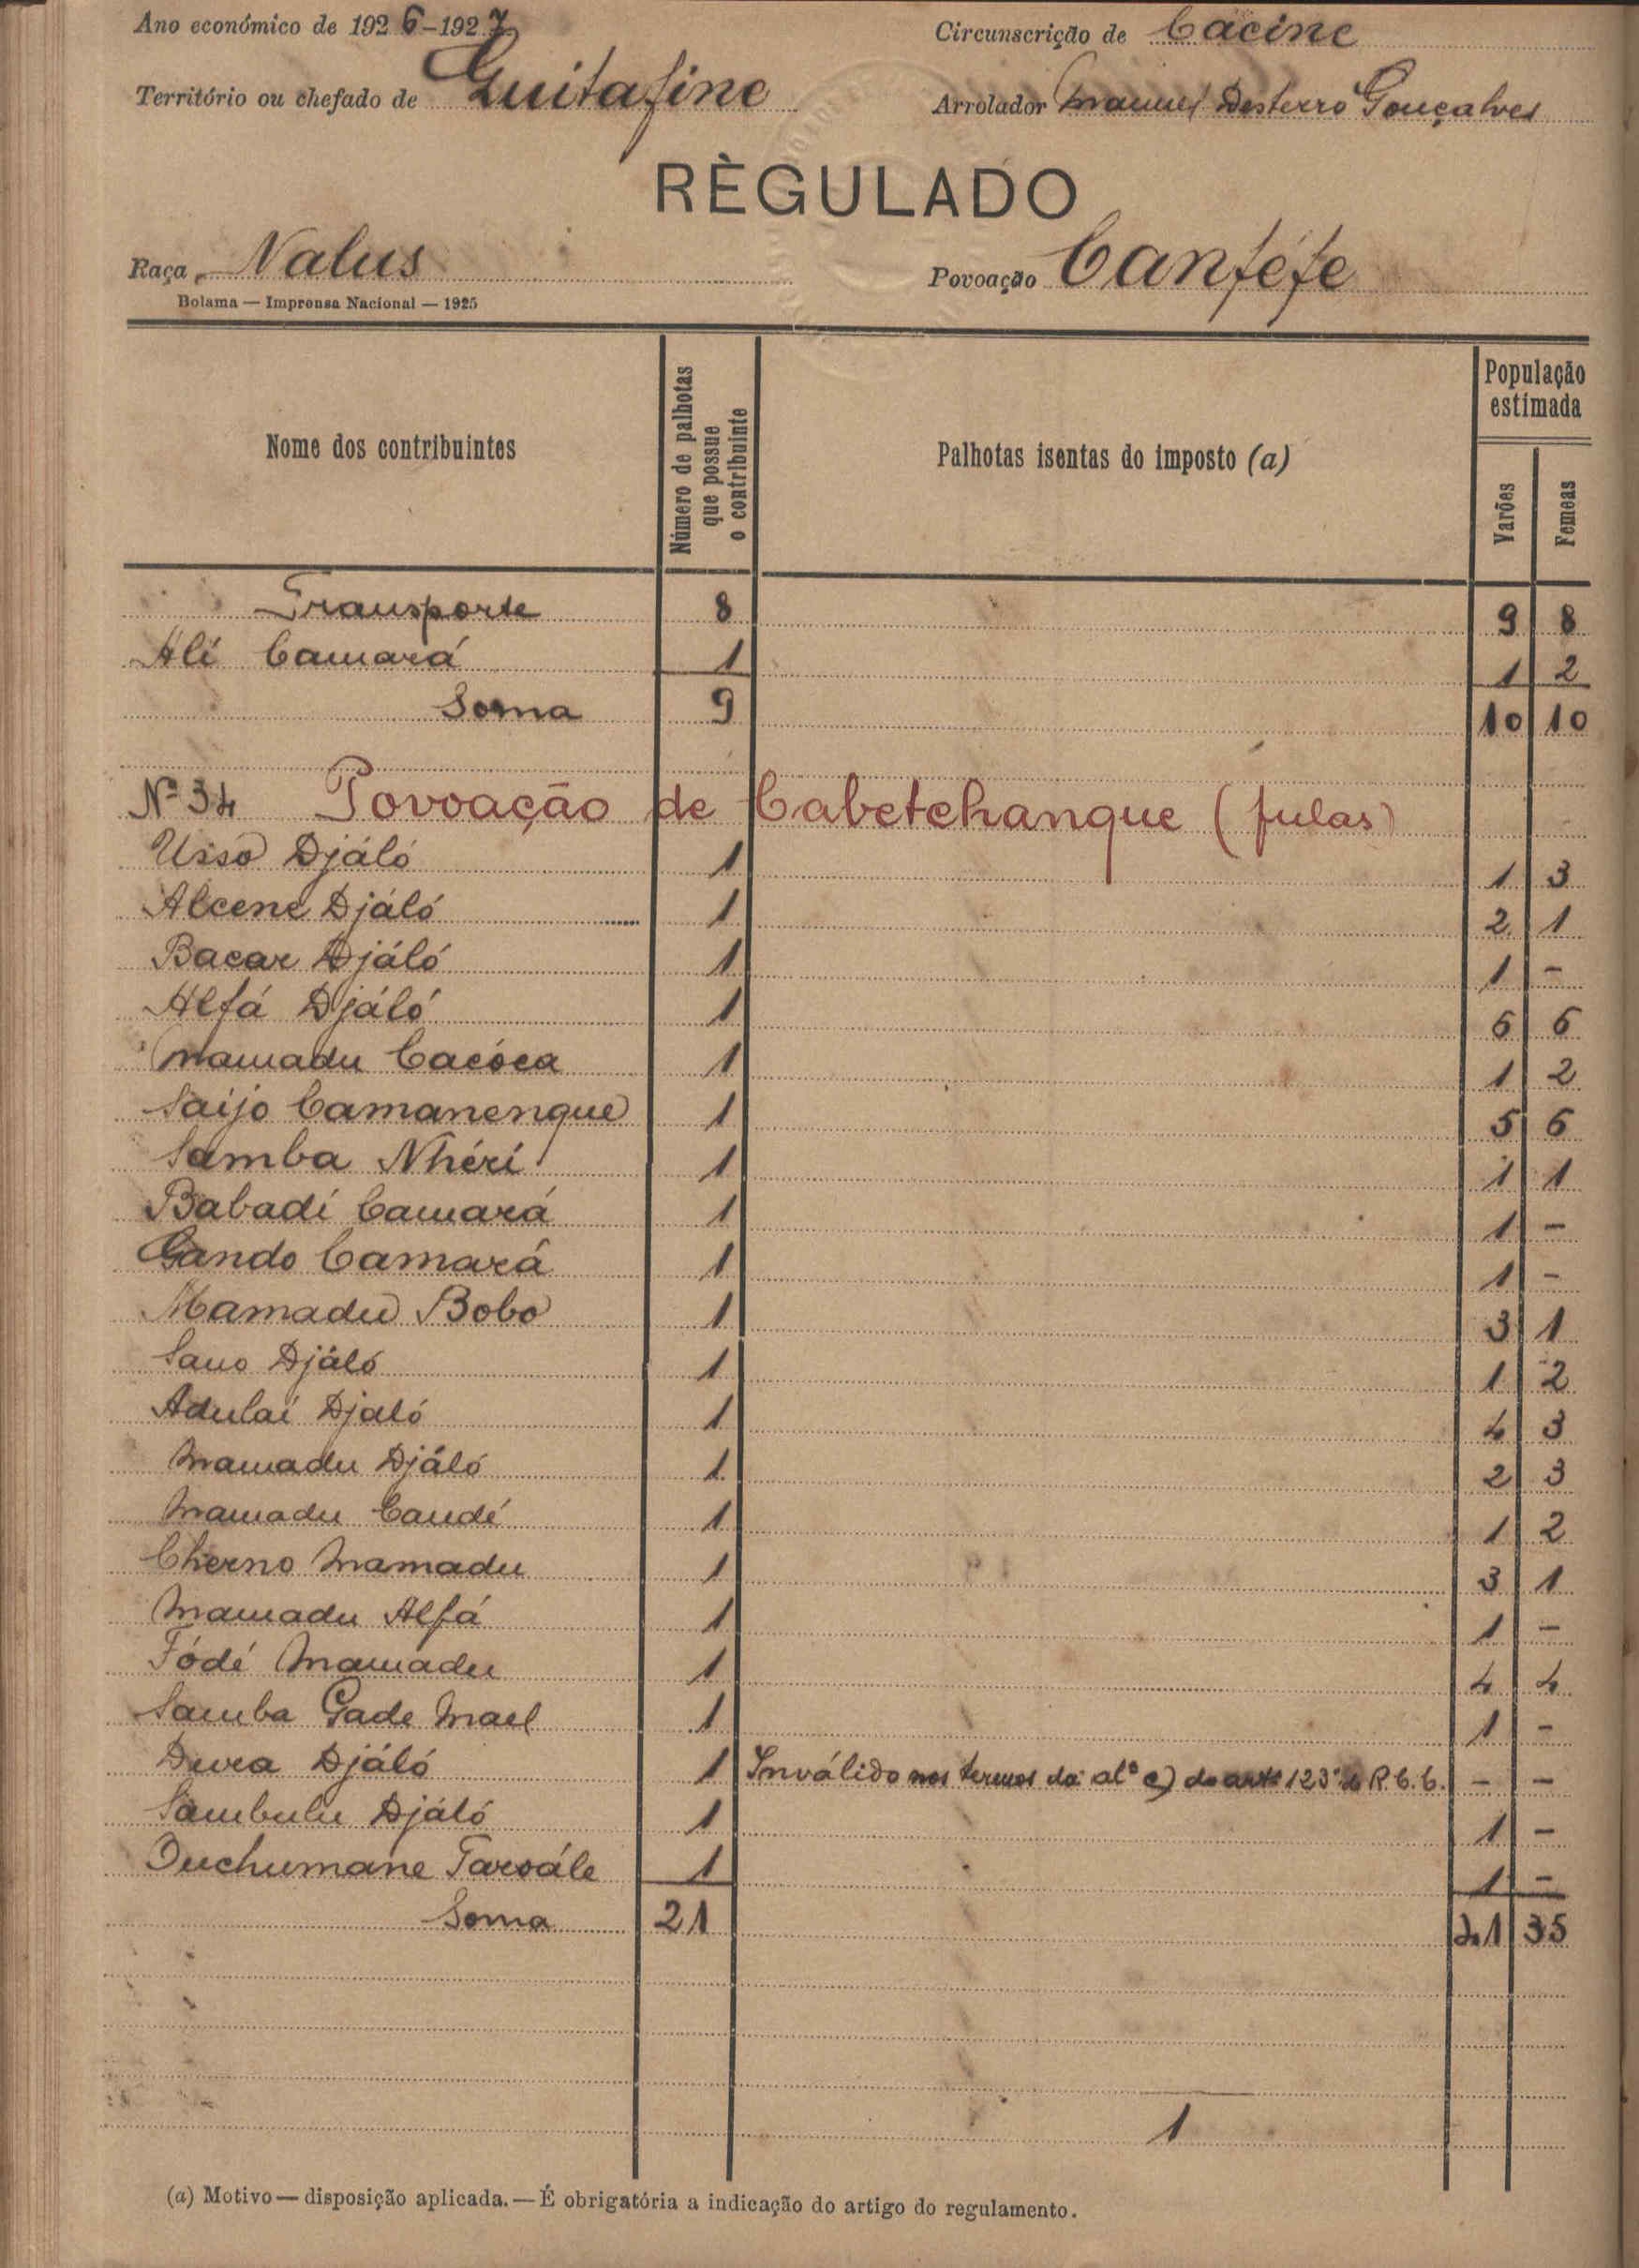 Ano económico de 1926-1927
Circunscrição de Cacine
Território ou chefado de Guitafine
Arrolador Manuel Desterro Gonçalves
RÈGULADO
Raça Nalus
Povoação Canféfe
Bolama — Imprensa Nacional — 1925
Nome dos contribuintes
Número de palhotas que possue o contribuinte
Palhotas isentas do imposto (a)
População estimada
Varões
Femeas
Transporte 8 9 8
Alí Camará 1 1 2
Soma 9 10 10
Nº 34 Povoação de Cabetchanque (fulas)
Usso Djáló 1 1 3
Alcene Djáló 1 2 1
Bacar Djáló 1 1 -
Alfá Djáló 1 6 6
Mamadu Cacóca 1 1 2
Saijo Camanenque 1 5 6
Samba Nhérí 1 1 1
Babadí Camará 1 1 -
Gando Camará 1 1 -
Mamadu Bobo 1 3 1
Sauo Djáló 1 1 2
Adulai Djaló 1 4 3
Mamadu Djáló 1 2 3
Mamadu Candé 1 1 2
Cherno Mamadu 1 3 1
Mamadu Alfá 1 1 -
Fódé Mamadu 1 4 4
Samba Gade Mael 1 1 -
Dura Djáló 1 Inválido nos termos da alª e) do artº 123º do R.C.C. - -
Sambulu Djáló 1 1 -
Duchumane Tarsále 1 1 -
Soma 21 21 35
1
(a) Motivo — disposição aplicada. — É obrigatória a indicação do artigo do regulamento.